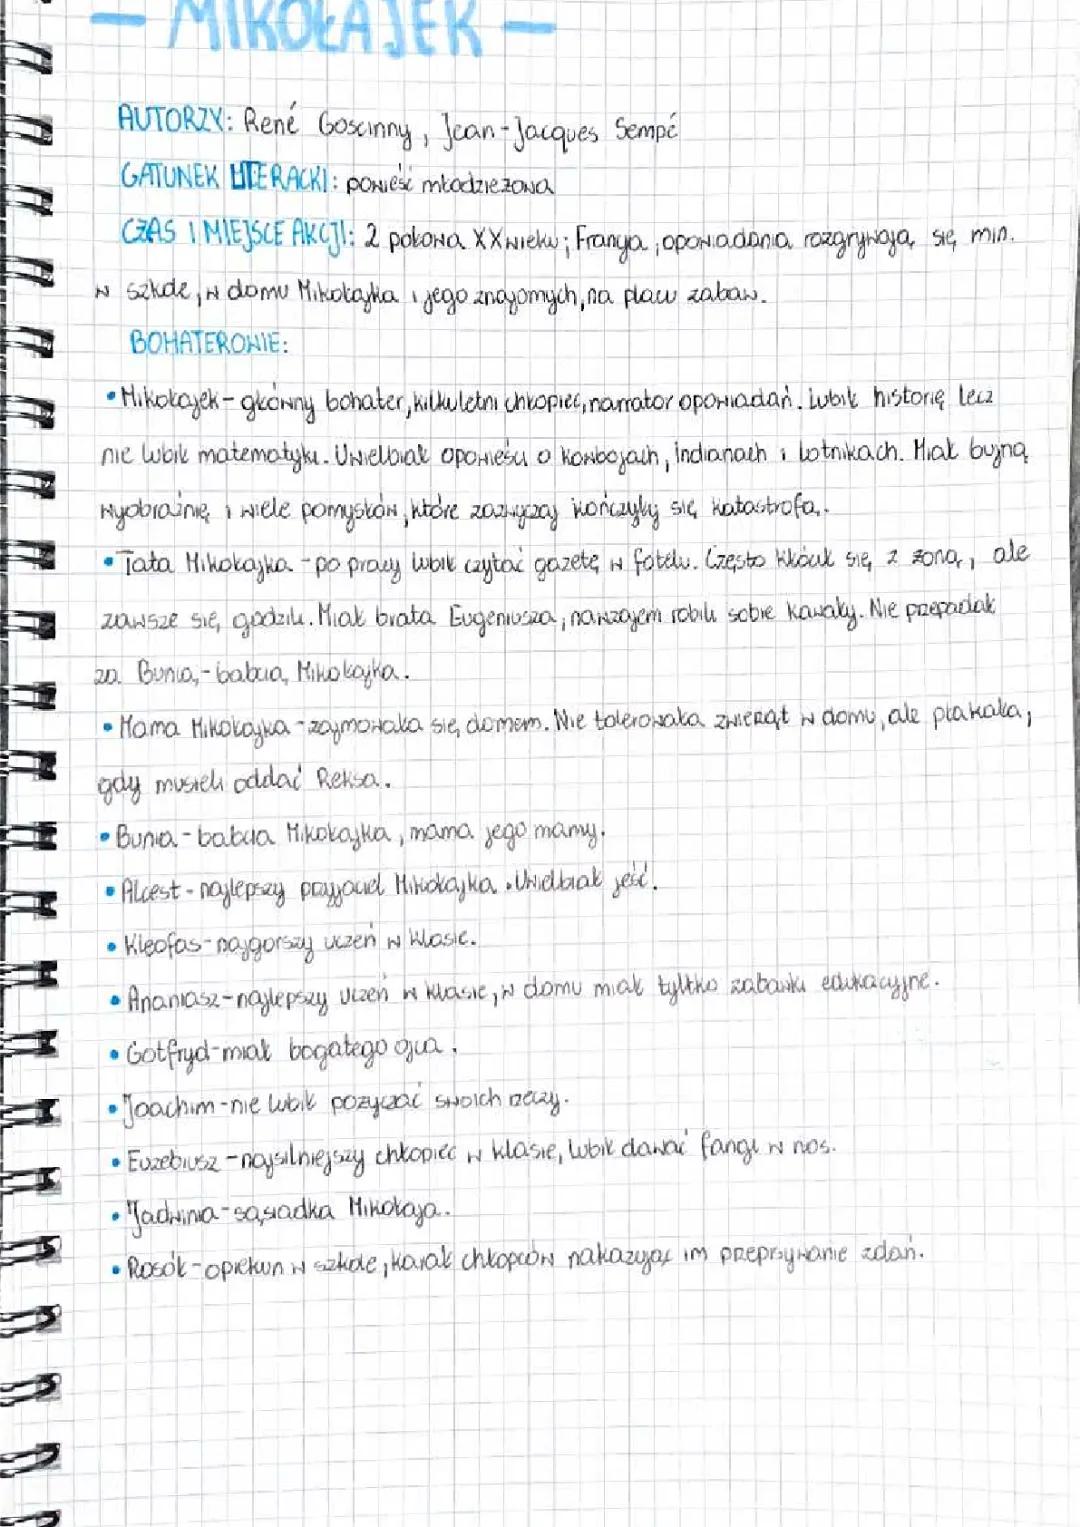 — MIKOŁAJEK —
AUTORZY: René Goscinny, Jean-Jacques Sempé
GATUNEK LITERACKI: powieść młodzieżowa
CZAS I MIEJSCE AKCJI: 2 połowa XX wieku; Francja, opowiadania rozgrywają się min.
w szkole, w domu Mikołajka i jego znajomych, na placu zabaw.
BOHATEROWIE:
• Mikołajek - główny bohater, kilkuletni chłopiec, narrator opowiadań. Lubił historię lecz
nie lubił matematyki. Uwielbiał opowieści o kowbojach, indianach i lotnikach. Miał bujną
wyobraźnię i wiele pomysłów, które zazwyczaj kończyły się katastrofą.
• Tata Mikołajka - po pracy lubił czytać gazetę w fotelu. Często kłócił się z żoną, ale
zawsze się godzili. Miał brata Eugeniusza, nawzajem robili sobie kawały. Nie przepadał
za Bunią - babcią Mikołajka.
• Mama Mikołajka - zajmowała się domem. Nie tolerowała zwierząt w domu, ale płakała,
gdy musieli oddać Reksa.
• Bunia - babcia Mikołajka, mama jego mamy.
• Alcest - najlepszy przyjaciel Mikołajka. Uwielbiał jeść.
• Kleofas - najgorszy uczeń w klasie.
• Ananiasz - najlepszy uczeń w klasie, w domu miał tyltko zabawki edukacyjne.
• Gotfryd - miał bogatego ojca.
• Joachim - nie lubił pożyczać swoich rzeczy.
• Euzebiusz - najsilniejszy chłopiec w klasie, lubił dawać fangi w nos.
• Jadwinia - sąsiadka Mikołaja.
• Rosół - opiekun w szkole, karał chłopców nakazując im przepisywanie zdań.